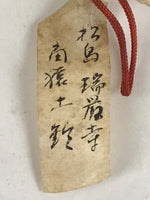 松島瑞巌寺
南猿土鈴